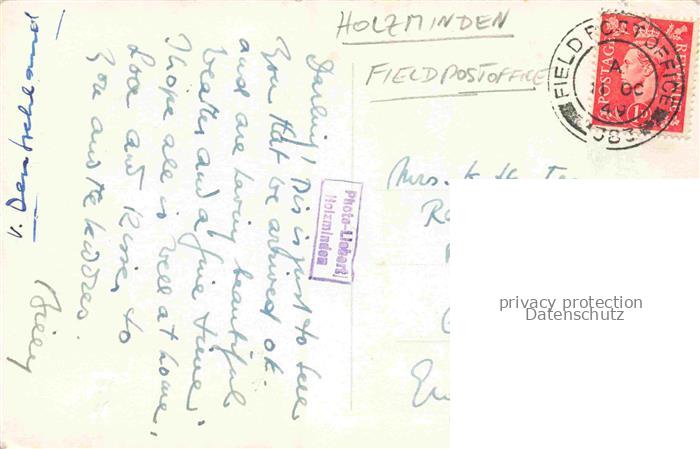 HOLZMINDEN
FIELDPOSTOFFICE
v. Deutschland
Darling! This is just to tell
you that we arrived ok.
and are having beautiful
weather and a fine time!
I hope all is well at home.
Love and Kisses to
you and the kiddies.
Billy
Photo-Liebert
Holzminden
FIELD POST OFFICE
A
OC
49
383
POSTAGE
REVENUE
Mrs. K.
privacy protection
Datenschutz